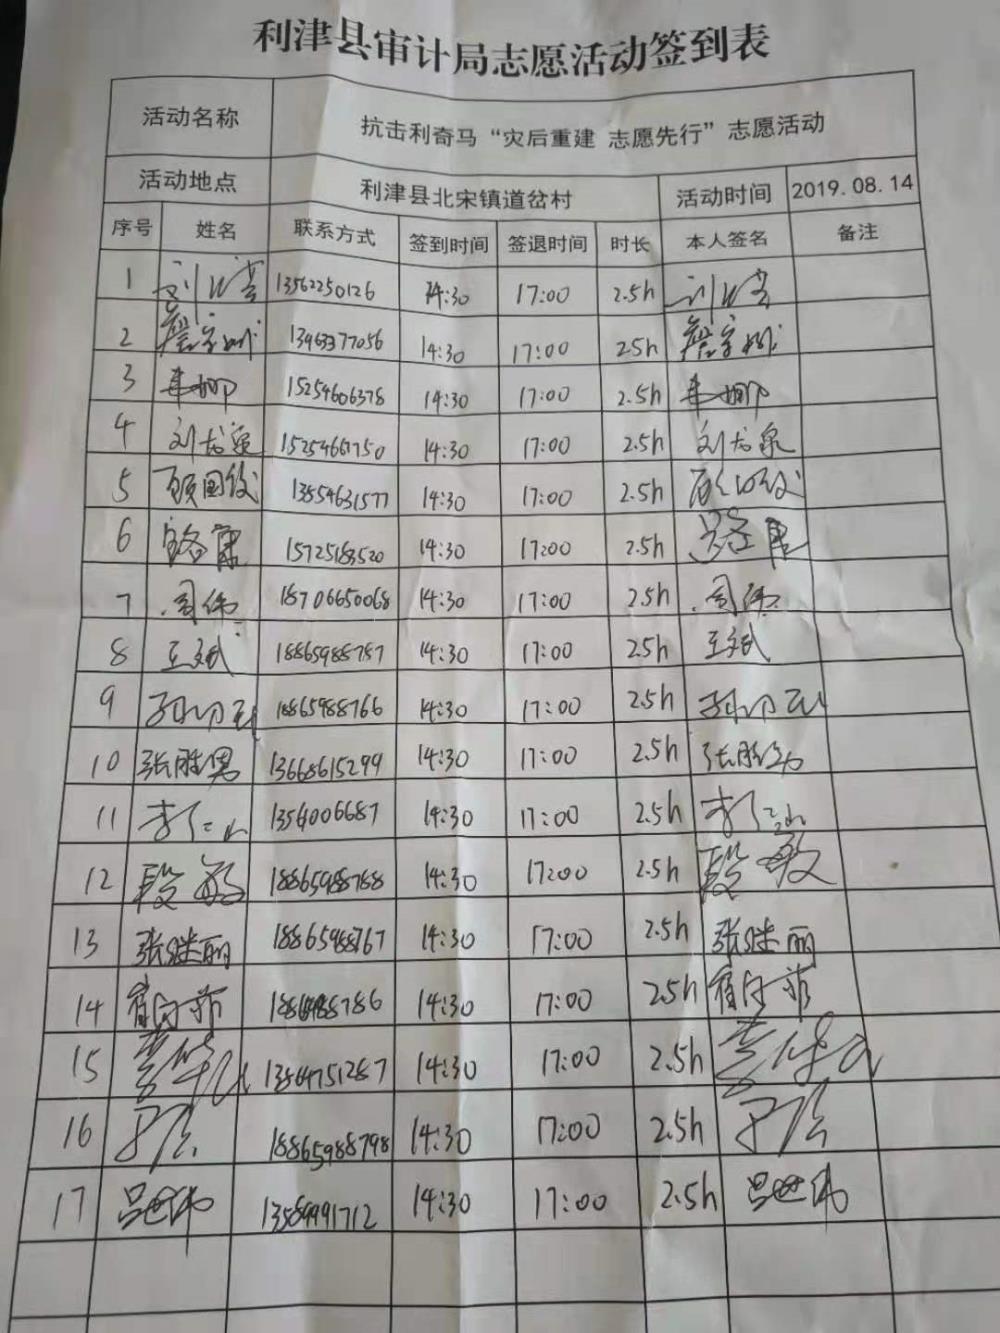 利津县审计局志愿活动签到表
活动名称 抗击利奇马“灾后重建 志愿先行”志愿活动
活动地点 利津县北宋镇道岔村 活动时间 2019.08.14
序号 姓名 联系方式 签到时间 签退时间 时长 本人签名 备注
1 13562250126 14:30 17:00 2.5h
2 13963377056 14:30 17:00 2.5h
3 15254606378 14:30 17:00 2.5h
4 刘 15254661750 14:30 17:00 2.5h 刘
5 顾国俊 13854631577 14:30 17:00 2.5h
6 路 15725183520 14:30 17:00 2.5h 路
7 周伟 18706650068 14:30 17:00 2.5h 周伟
8 王斌 18865988787 14:30 17:00 2.5h 王斌
9 18865988766 14:30 17:00 2.5h
10 张胜男 13668615299 14:30 17:00 2.5h 张胜男
11 李仁山 13564006687 14:30 17:00 2.5h 李仁山
12 段敏 18865988788 14:30 17:00 2.5h 段敏
13 张继丽 18865988767 14:30 17:00 2.5h 张继丽
14 14:30 17:00 2.5h
15 14:30 17:00 2.5h
16 18865988798 14:30 17:00 2.5h
17 吕世伟 13589991712 14:30 17:00 2.5h 吕世伟